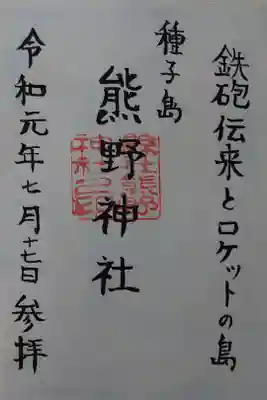 鉄砲伝来とロケットの島
種子島
熊野神社
令和元年七月十七日参拝